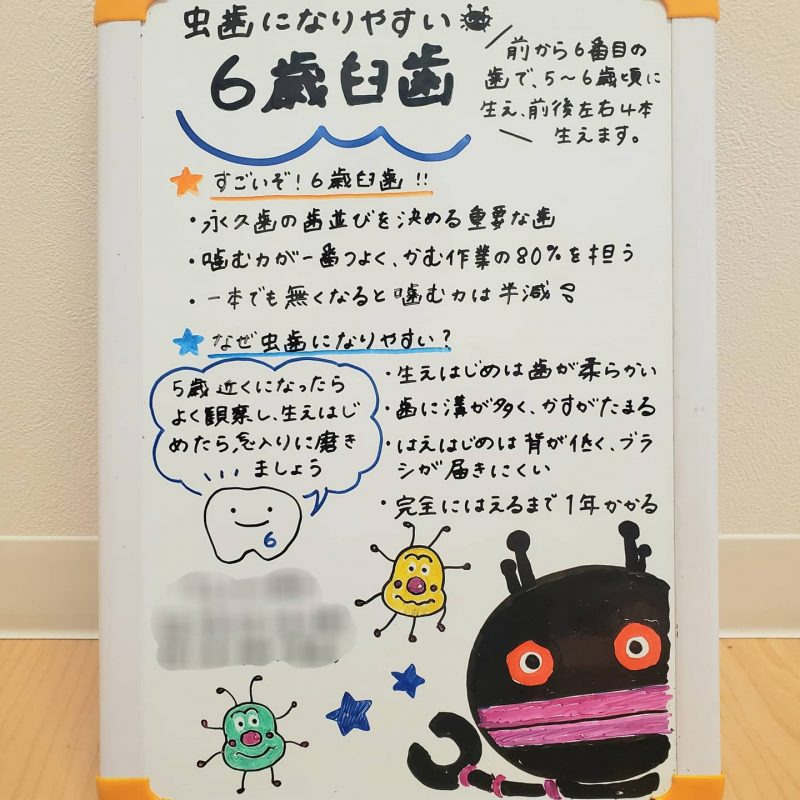 虫歯になりやすい
6歳臼歯
前から6番目の
歯で、5〜6歳頃に
生え、前後左右4本
生えます。
すごいぞ!6歳臼歯!!
・永久歯の歯並びを決める重要な歯
・噛む力が一番つよく、かむ作業の80%を担う
・一本でも無くなると噛む力は半減
なぜ虫歯になりやすい?
5歳近くになったら
よく観察し、生えはじ
めたら念入りに磨き
ましょう
6
・生えはじめは歯が柔らかい
・歯に溝が多く、かすがたまる
・はえはじめは背が低く、ブラ
シが届きにくい
・完全にはえるまで1年かかる